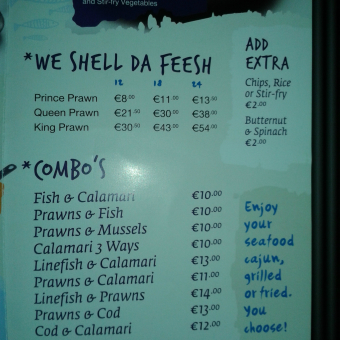 and Stir-fry Vegetables
*WE SHELL DA FEESH
12 18 24
Prince Prawn €8.00 €11.00 €13.00
Queen Prawn €21.50 €30.00 €38.00
King Prawn €30.00 €43.00 €54.00
ADD
EXTRA
Chips, Rice
or Stir-fry
€2.00
Butternut
& Spinach
€2.00
*COMBO'S
Fish & Calamari €10.00
Prawns & Fish €10.00
Prawns & Mussels €10.00
Calamari 3 Ways €10.00
Linefish & Calamari €13.00
Prawns & Calamari €11.00
Linefish & Prawns €14.00
Prawns & Cod €13.00
Cod & Calamari €12.00
Enjoy
your
seafood
cajun,
grilled
or fried.
You
choose!